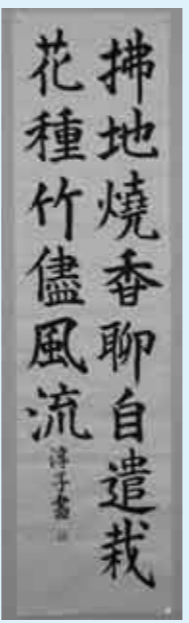 拂地燒香聊自遣栽
花種竹儘風流
淳子書